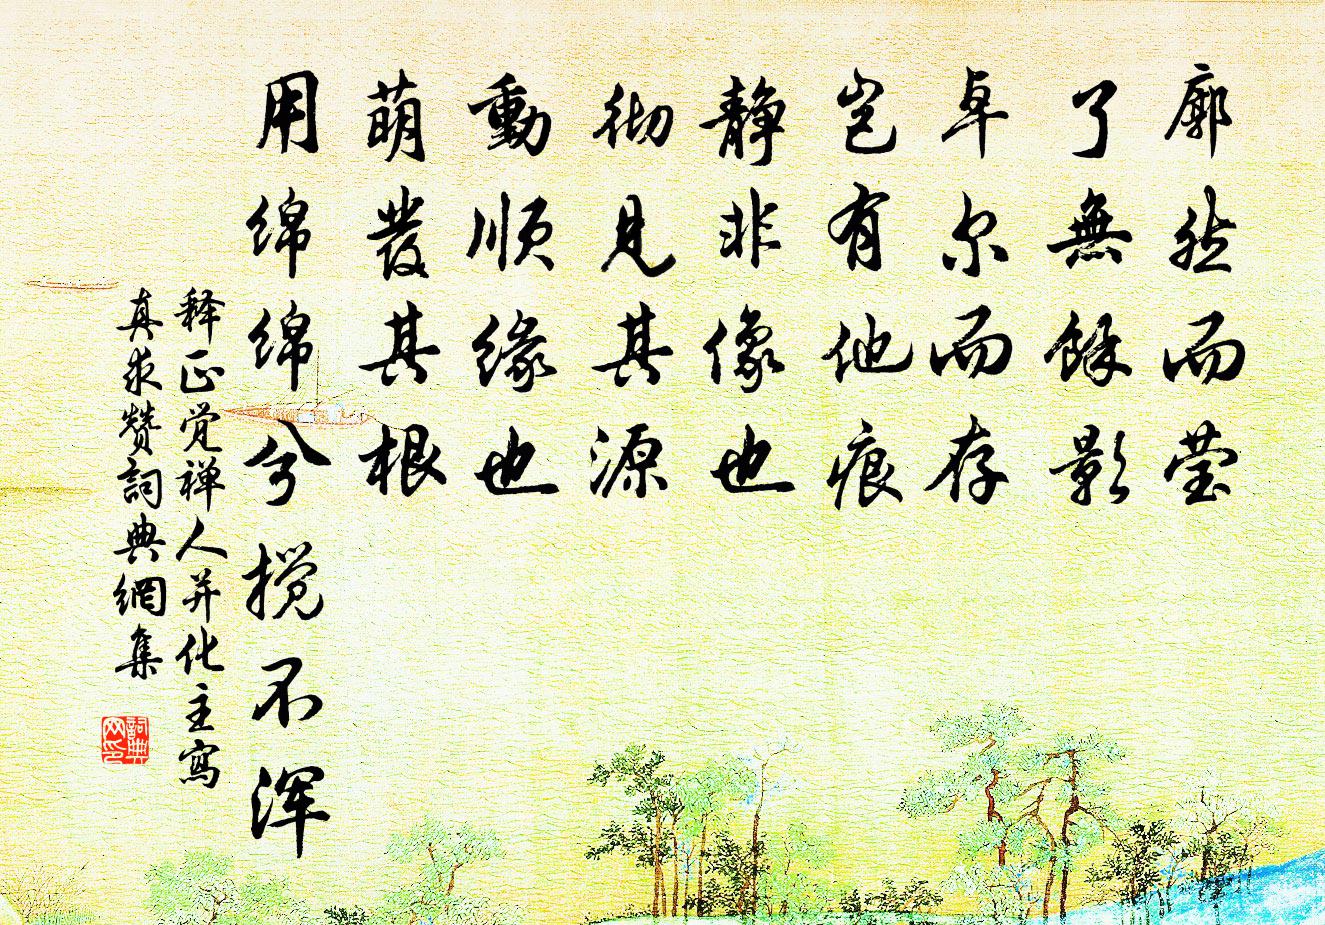 廓然而莹
了無餘影
卓尔而存
岂有他痕
静非像也
彻见其源
動顺缘也
萌發其根
用绵绵兮搅不浑
释正觉禅人并化主寫
真求赞詞典網集
詞典网印